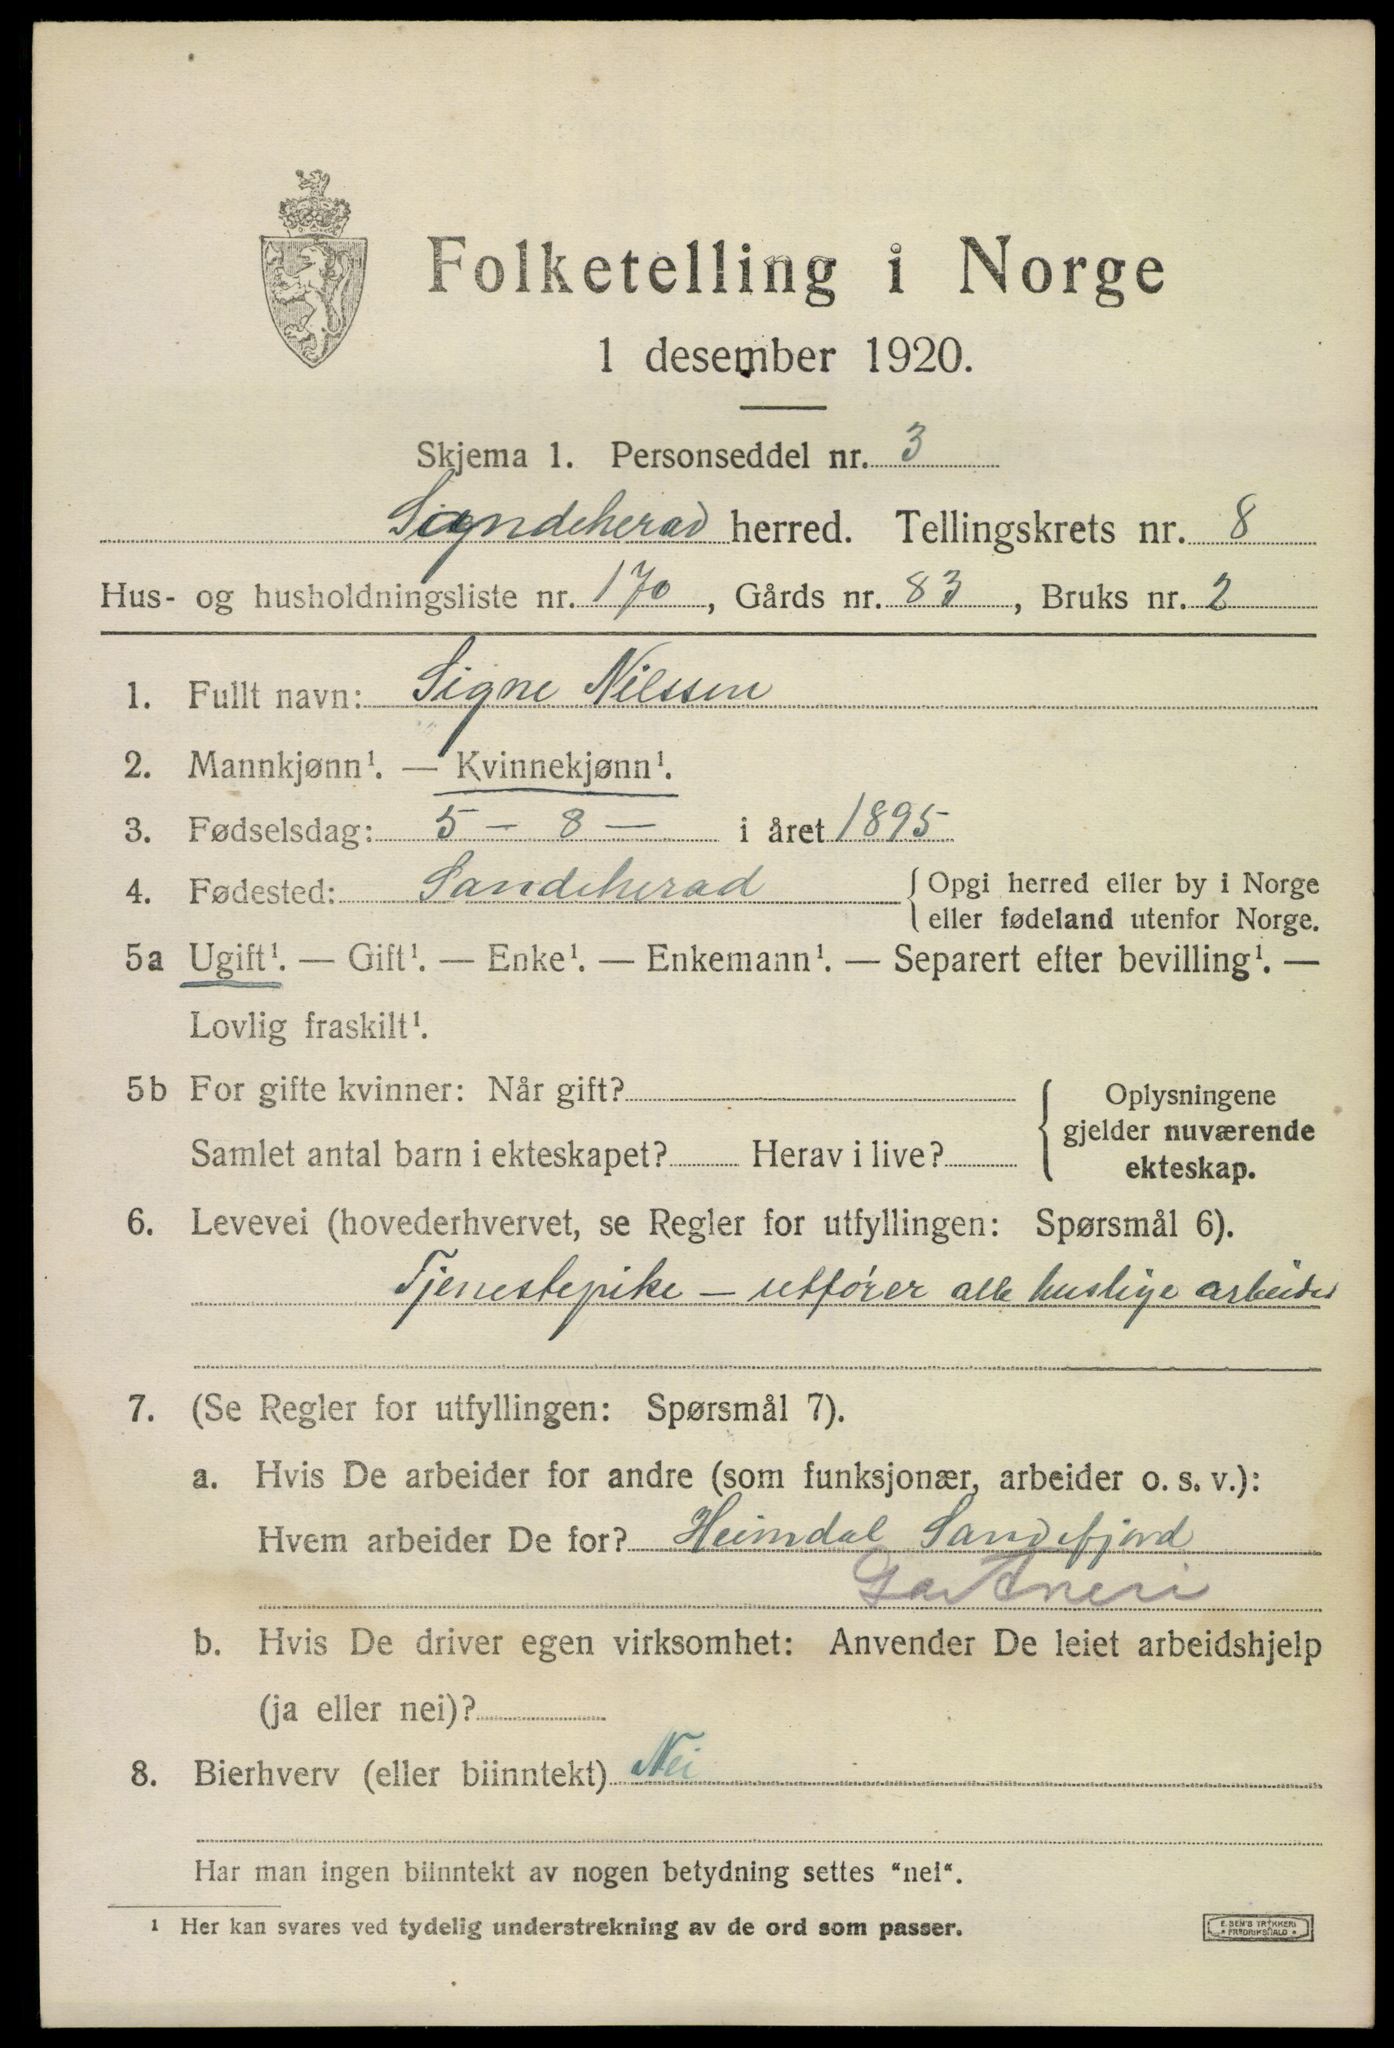 Folketelling i Norge
1 desember 1920.
Skjema 1. Personseddel nr. 3
Sandeherad herred. Tellingskrets nr. 8
Hus- og husholdningsliste nr. 170, Gårds nr. 83, Bruks nr. 2
1. Fullt navn: Signe Nilssen
2. Mannkjønn¹. — Kvinnekjønn¹.
3. Fødselsdag: 5 – 8 — i året 1895
4. Fødested: Sandeherad { Opgi herred eller by i Norge
eller fødeland utenfor Norge.
5a Ugift¹. — Gift¹. — Enke¹. — Enkemann¹. — Separert efter bevilling¹. —
Lovlig fraskilt¹.
5b For gifte kvinner: Når gift?
Samlet antal barn i ekteskapet? Herav i live?
Oplysningene
gjelder nuværende
ekteskap.
6. Levevei (hovederhvervet, se Regler for utfyllingen: Spørsmål 6).
Tjenestepike – utfører alle huslige arbeider
7. (Se Regler for utfyllingen: Spørsmål 7).
a. Hvis De arbeider for andre (som funksjonær, arbeider o. s. v.):
Hvem arbeider De for? Heimdal Sandefjord
Gartneri
b. Hvis De driver egen virksomhet: Anvender De leiet arbeidshjelp
(ja eller nei)?
8. Bierhverv (eller biinntekt) Nei
Har man ingen biinntekt av nogen betydning settes “nei“.
¹ Her kan svares ved tydelig understrekning av de ord som passer.
E. SEM'S TRYKKERI
FREDRIKSHALD